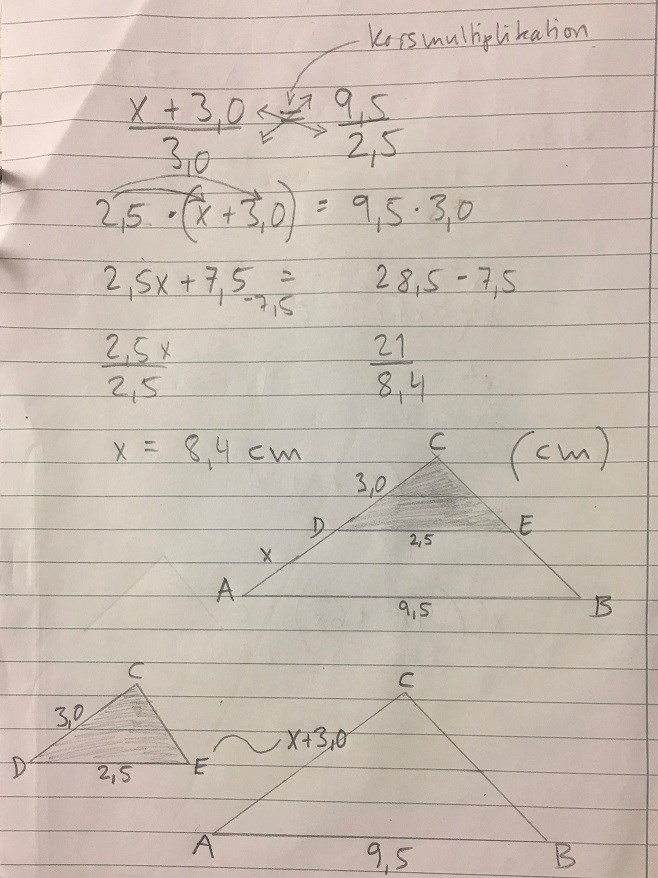 Korsmultiplikation
x + 3,0 = 9,5
3,0 2,5
2,5 · (x + 3,0) = 9,5 · 3,0
2,5x + 7,5 = 28,5 - 7,5
-7,5
2,5x 21
2,5 8,4
x = 8,4 cm
C (cm)
3,0
D 2,5 E
x
A 9,5 B
C C
3,0 x+3,0
D 2,5 E
A 9,5 B